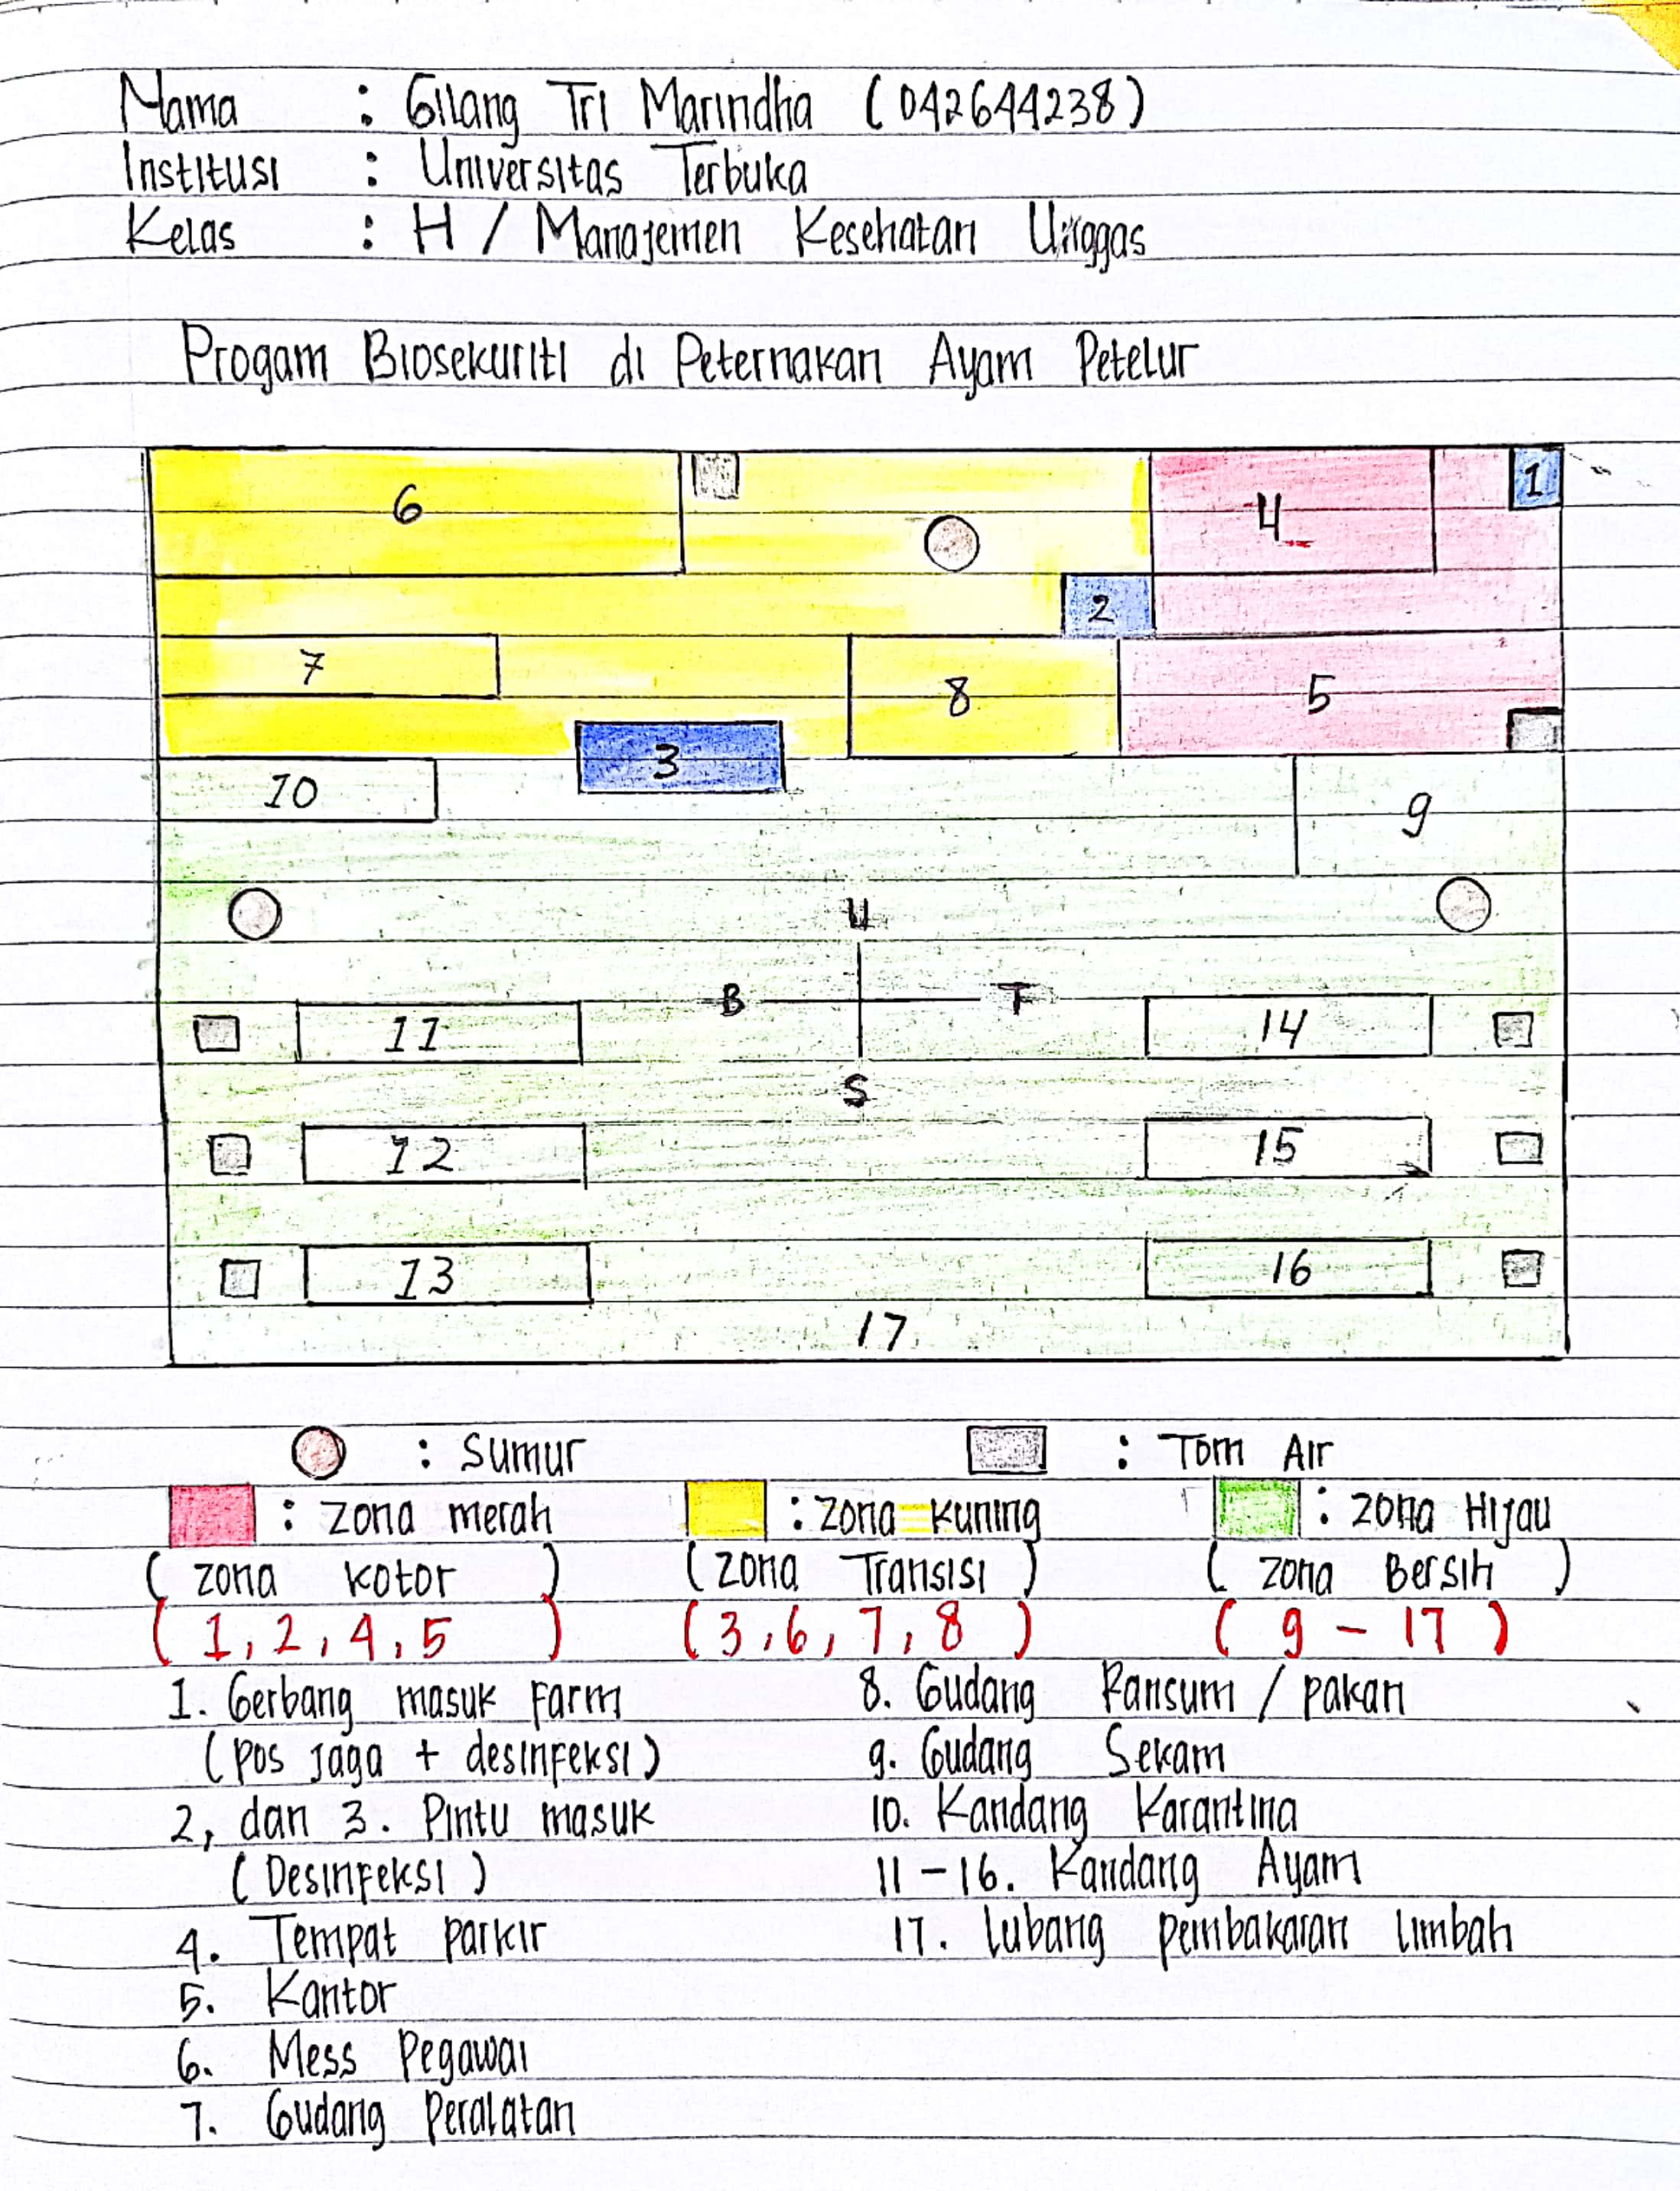 Nama : Gilang Tri Marindha (042644238)
Institusi : Universitas Terbuka
Kelas : H / Manajemen Kesehatan Unggas
Progam Biosekuriti di Peternakan Ayam Petelur
6 4 1
2
7 8 5
3
10 9
U
B T
11 14
S
12 15
13 16
17
: Sumur : Torn Air
: zona merah : zona kuning : zona Hijau
( zona kotor ) ( zona Transisi ) ( zona Bersih )
( 1, 2, 4, 5 ) ( 3, 6, 7, 8 ) ( 9 - 17 )
1. Gerbang masuk Farm 8. Gudang Ransum / pakan
(pos jaga + desinfeksi) 9. Gudang Sekam
2, dan 3. Pintu masuk 10. Kandang Karantina
(Desinfeksi) 11-16. Kandang Ayam
4. Tempat parkir 17. lubang pembakaran limbah
5. Kantor
6. Mess Pegawai
7. Gudang Peralatan